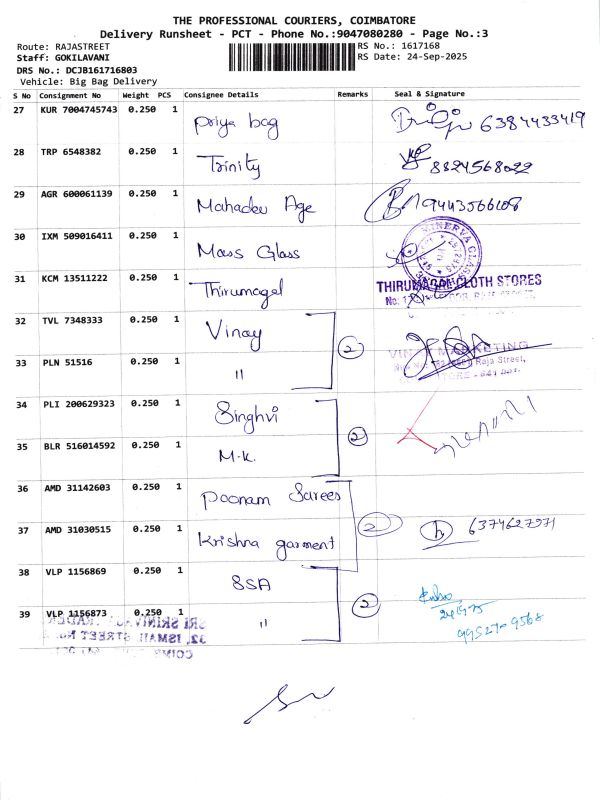 THE PROFESSIONAL COURIERS, COIMBATORE
Delivery Runsheet - PCT - Phone No.:9047080280 - Page No.:3
Route: RAJASTREET RS No.: 1617168
Staff: GOKILAVANI RS Date: 24-Sep-2025
DRS No.: DCJB161716803
Vehicle: Big Bag Delivery
S No Consignment No Weight PCS Consignee Details Remarks Seal & Signature
27 KUR 7004745743 0.250 1 Priya bag 6384433419
28 TRP 6548382 0.250 1 Trinity 8824568022
29 AGR 600061139 0.250 1 Mahadev Age 9443566108
30 IXM 509016411 0.250 1 Mass Glass MINERVA GLASS
31 KCM 13511222 0.250 1 Thirumagal THIRUMAGAL CLOTH STORES
32 TVL 7348333 0.250 1 Vinay 2 MARKETING
33 PLN 51516 0.250 1 " Raja Street,
34 PLI 200629323 0.250 1 Singhvi 2
35 BLR 516014592 0.250 1 M.K.
36 AMD 31142603 0.250 1 Poonam Sarees 2
37 AMD 31030515 0.250 1 Krishna garment 6374627971
38 VLP 1156869 0.250 1 SSA 2
39 VLP 1156873 0.250 1 " 99527-9568
SRI SRINIVASA
32, ISMAIL STREET